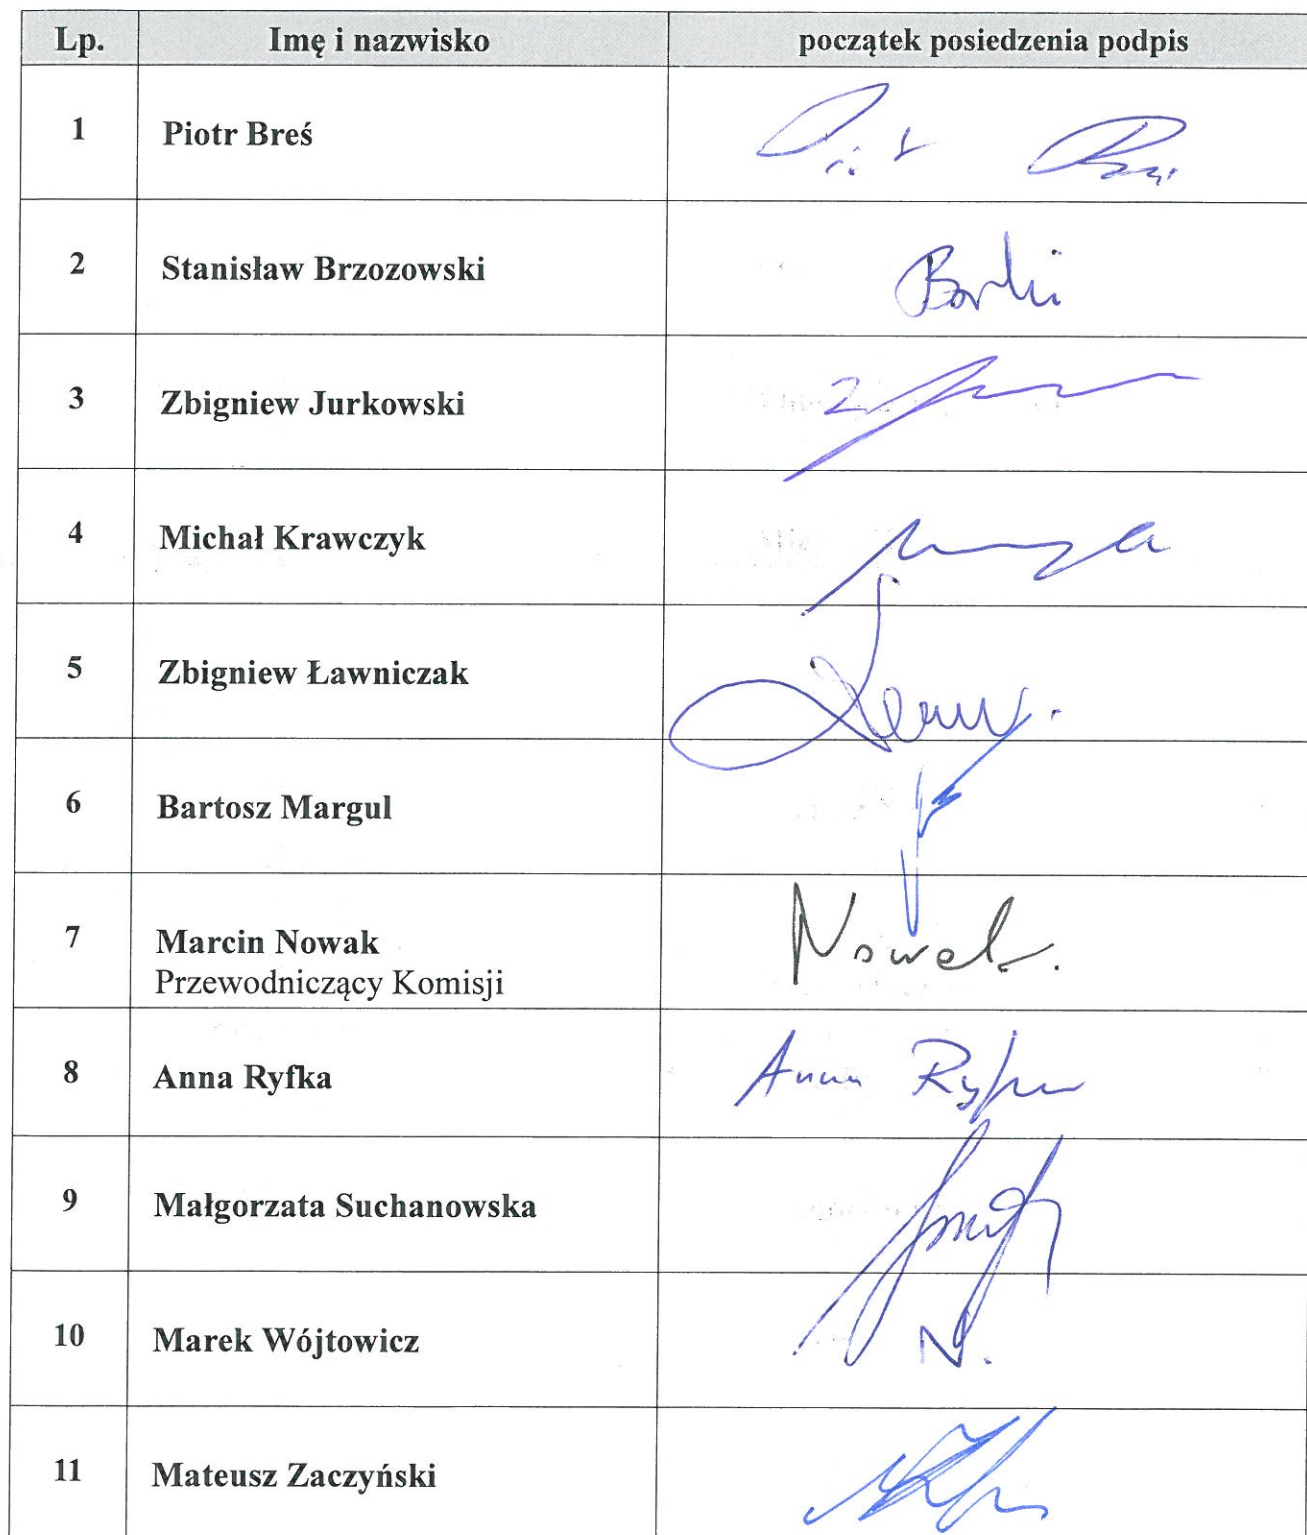 Lp. Imię i nazwisko początek posiedzenia podpis
1 Piotr Breś
2 Stanisław Brzozowski
3 Zbigniew Jurkowski
4 Michał Krawczyk
5 Zbigniew Ławniczak
6 Bartosz Margul
7 Marcin Nowak Nowak.
Przewodniczący Komisji
8 Anna Ryfka Anna Ryfka
9 Małgorzata Suchanowska
10 Marek Wójtowicz
11 Mateusz Zaczyński